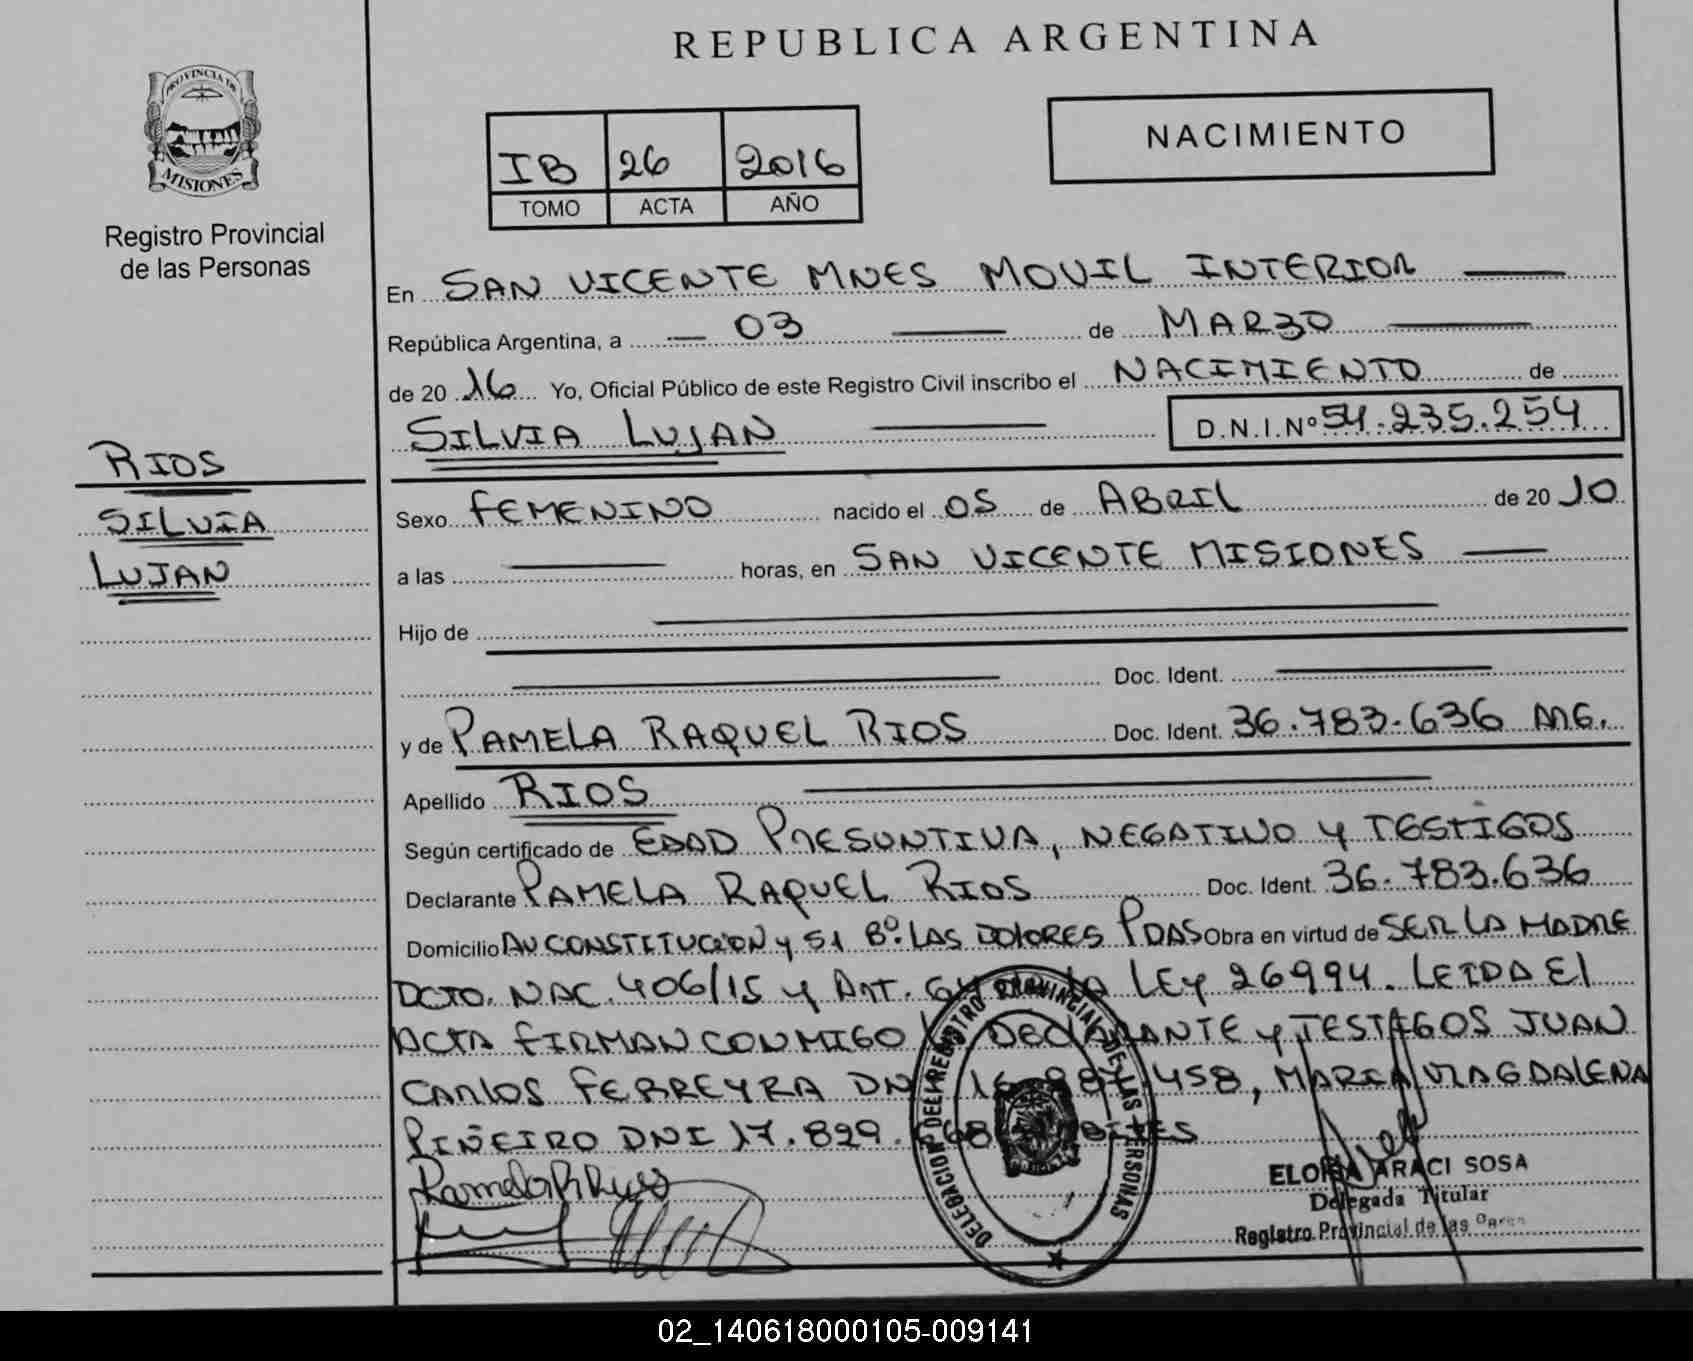 REPUBLICA ARGENTINA
PROVINCIA DE
MISIONES
Registro Provincial
de las Personas
IB 26 2016
TOMO ACTA AÑO
NACIMIENTO
En SAN VICENTE MNES MOVIL INTERIOR
República Argentina, a 03 de MARZO
de 2016 Yo, Oficial Público de este Registro Civil inscribo el NACIMIENTO de
SILVIA LUJAN D.N.I.Nº 54.235.254
RIOS
SILVIA
LUJAN
Sexo FEMENINO nacido el 05 de ABRIL de 2010
a las horas, en SAN VICENTE MISIONES
Hijo de
Doc. Ident.
y de PAMELA RAQUEL RIOS Doc. Ident. 36.783.636 MG.
Apellido RIOS
Según certificado de EDAD PRESUNTIVA, NEGATIVO y TESTIGOS
Declarante PAMELA RAQUEL RIOS Doc. Ident. 36.783.636
Domicilio AV CONSTITUCION y 51 Bº. LAS DOLORES PDAS Obra en virtud de SER LA MADRE
DCTO. NAC. 406/15 y ART. LEY 26994. LEIDA El
ACTA FIRMAN CONMIGO DECLARANTE y TESTIGOS JUAN
CARLOS FERREYRA 458, MARIA MAGDALENA
PIÑEIRO DNI 17.829.
DELEGACION DEL REGISTRO PROVINCIAL DE LAS PERSONAS
ELOISA ARACI SOSA
Delegada Titular
Registro Provincial de las
02_140618000105-009141